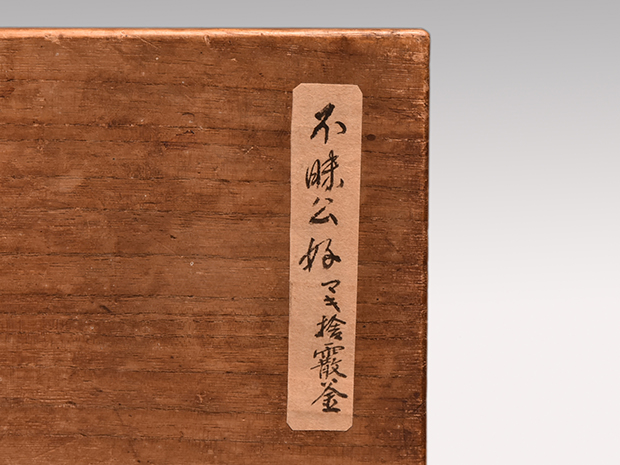 不昧公好マキ捨霰釜